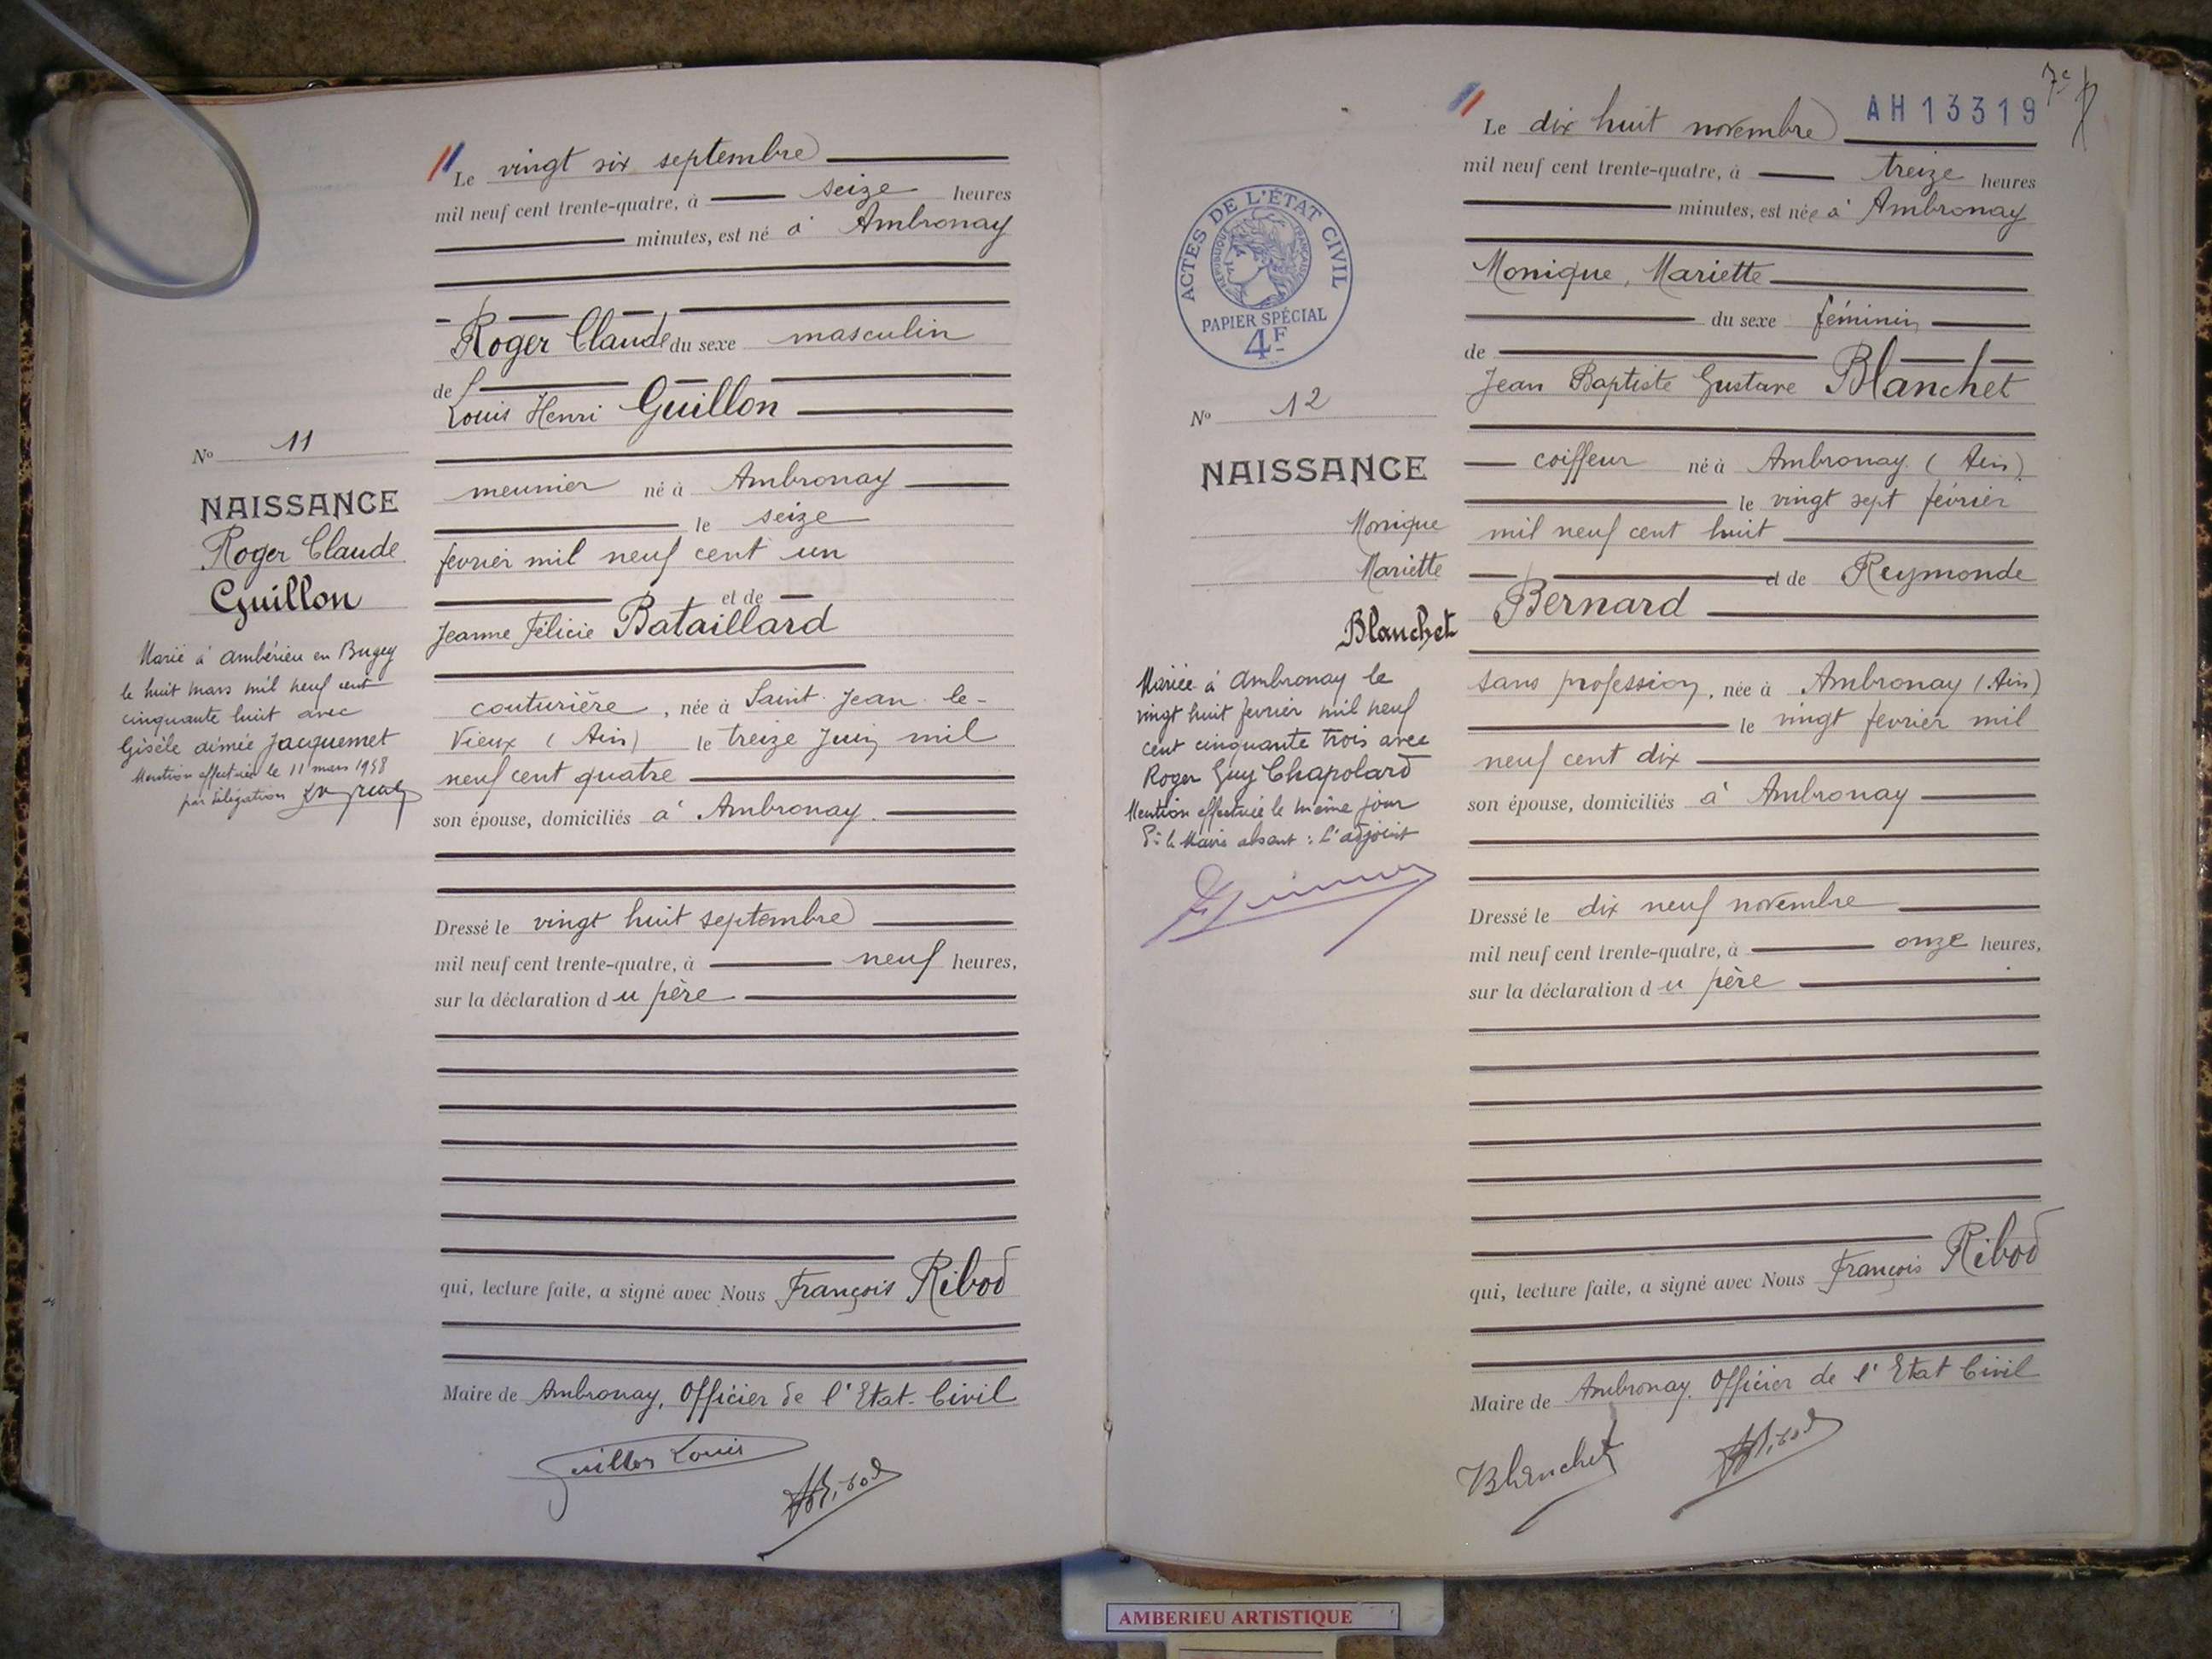 Le vingt six septembre
mil neuf cent trente-quatre, à seize heures
minutes, est né à Ambronay
Roger Claude du sexe masculin
de
Louis Henri Guillon
meunier né à Ambronay
le seize
fevrier mil neuf cent un
et de
Jeanne Félicie Bataillard
couturière, née à Saint-Jean-le-
Vieux (Ain) le treize Juin mil
neuf cent quatre
son épouse, domiciliés à Ambronay.
Dressé le vingt huit septembre
mil neuf cent trente-quatre, à neuf heures,
sur la déclaration du père
qui, lecture faite, a signé avec Nous François Ribod
Maire de Ambronay, Officier de l'Etat-Civil
Guillon Louis
Ribod
No 11
NAISSANCE
Roger Claude
Guillon
Marié à Ambérieu en Bugey
le huit mars mil neuf cent
cinquante huit avec
Gisèle aimée Jacquemet
Mention effectuée le 11 mars 1958
par délégation
AH 13319
7e
Le dix huit novembre
mil neuf cent trente-quatre, à treize heures
minutes, est née à Ambronay
Monique, Mariette
du sexe féminin
de
Jean Baptiste Gustave Blanchet
coiffeur né à Ambronay (Ain)
le vingt sept février
mil neuf cent huit
et de Reymonde
Bernard
sans profession, née à Ambronay (Ain)
le vingt fevrier mil
neuf cent dix
son épouse, domiciliés à Ambronay
Dressé le dix neuf novembre
mil neuf cent trente-quatre, à onze heures,
sur la déclaration du père
qui, lecture faite, a signé avec Nous François Ribod
Maire de Ambronay, Officier de l'Etat Civil
Blanchet
Ribod
ACTES DE L'ÉTAT CIVIL
RÉPUBLIQUE FRANÇAISE
PAPIER SPÉCIAL
4F
No 12
NAISSANCE
Monique
Mariette
Blanchet
Mariée à Ambronay le
vingt huit fevrier mil neuf
cent cinquante trois avec
Roger Guy Chapolard
Mention effectuée le même jour
Pr le Maire absent : L'adjoint
AMBERIEU ARTISTIQUE